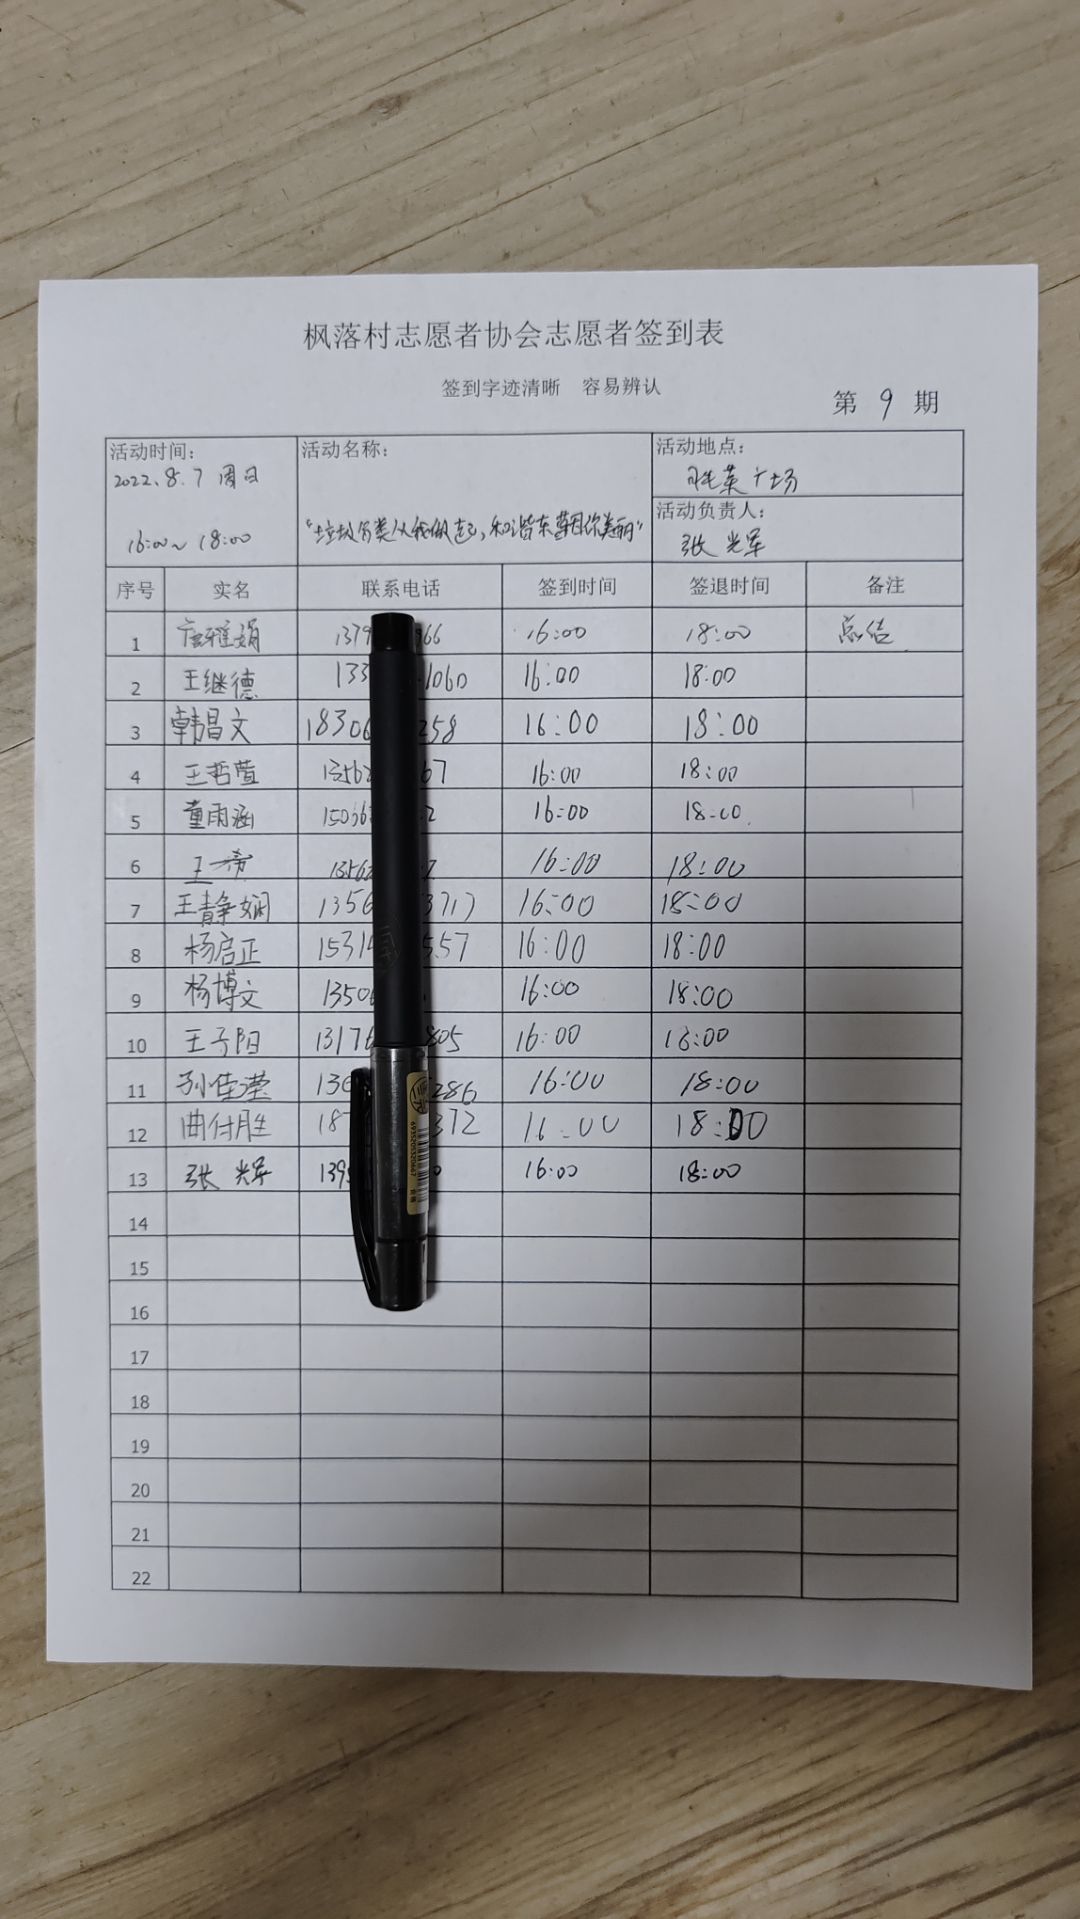 枫落村志愿者协会志愿者签到表
签到字迹清晰 容易辨认
第 9 期
活动时间：
2022.8.7 周日
16:00~18:00
活动名称：
"垃圾分类从我做起，和谐东莱因你美丽"
活动地点：
广场
活动负责人：
张光军
序号 实名 联系电话 签到时间 签退时间 备注
1 唐雅娟 1379 966 16:00 18:00 总结
2 王继德 133 1060 16:00 18:00
3 韩昌文 18306 258 16:00 18:00
4 王哲萱 13562 67 16:00 18:00
5 董雨涵 15036 2 16:00 18:00
6 王一 13562 16:00 18:00
7 王静娴 1356 3717 16:00 18:00
8 杨启正 1531 557 16:00 18:00
9 杨博文 1350 16:00 18:00
10 王子阳 1317 805 16:00 18:00
11 孙佳滢 136 286 16:00 18:00
12 曲付胜 187 372 16:00 18:00
13 张光军 139 0 16:00 18:00
14
15
16
17
18
19
20
21
22
6935205320667